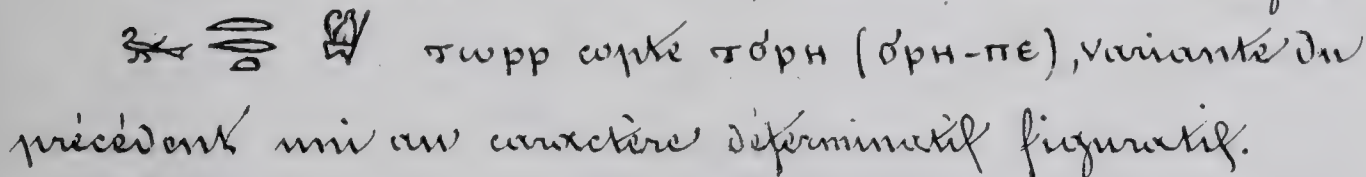 πωρρ copte πόρη (όρη-πε), variante du
précédent uni au caractère déterminatif figuratif.